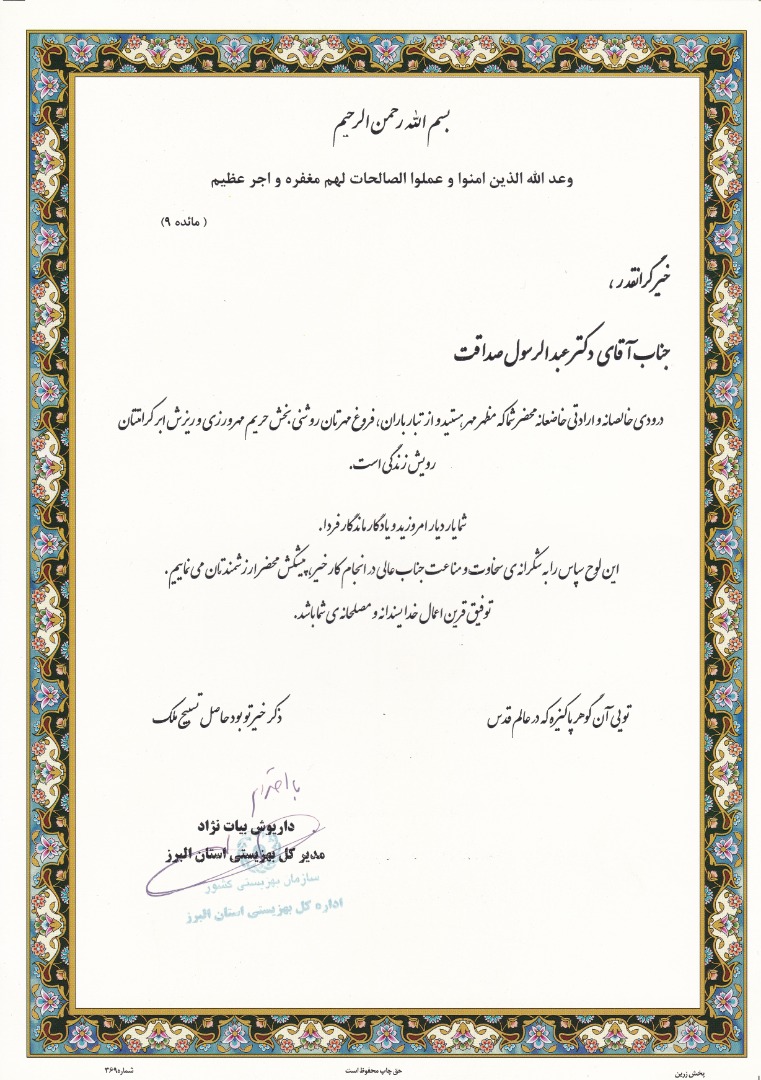 بسم الله رحمن الرحیم
وعد الله الذین امنوا و عملوا الصالحات لهم مغفره و اجر عظیم
( مائده ۹)
خیر گرانقدر ،
جناب آقای دکتر عبدالرسول صداقت
درودی خالصانه و ارادتی خاضعانه محضر شما که مظهر مهر هستید و از تبار باران، فروغ مهرتان روشنی بخش حریم مهرورزی و ریزش ابر کرامتتان
رویش زندگی است.
شما یار دیار امروزید و یادگار ماندگار فردا.
این لوح سپاس را به شکرانه ی سخاوت و مناعت جناب عالی در انجام کار خیر، پیشکش محضر ارزشمندتان می نماییم.
توفیق قرین اعمال خداپسندانه و مصلحانه ی شما باشد.
تویی آن گوهر پاکیزه که در عالم قدس ذکر خیر تو بود حاصل تسبیح ملک
با احترام
داریوش بیات نژاد
مدیر کل بهزیستی استان البرز
سازمان بهزیستی کشور
اداره کل بهزیستی استان البرز
پخش زرین حق چاپ محفوظ است شماره ۳۶۹